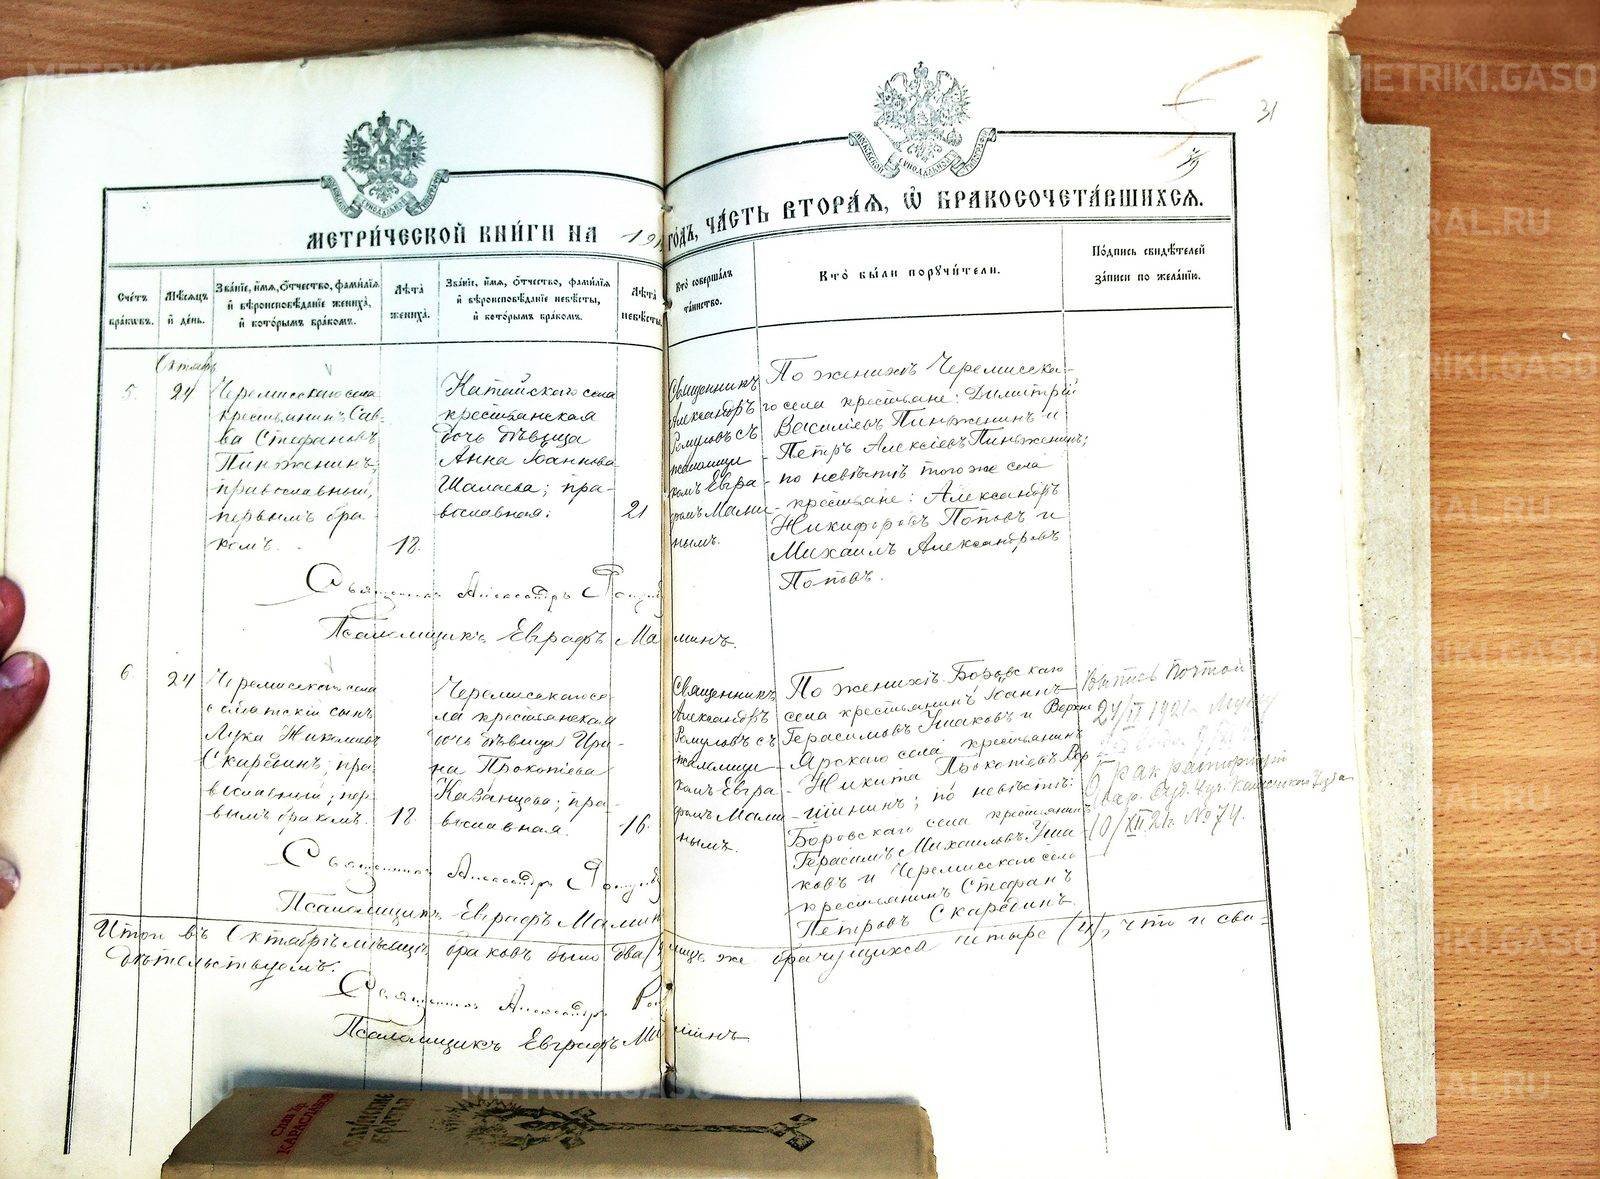 31
МЕТРИ́ЧЕСКОЙ КНИ́ГИ НА 191
ГО́ДЪ, ЧА́СТЬ ВТОРА́Я, Ѿ БРАКОСОЧЕТА́ВШИХСЯ.
Сче́тъ бра́кѡвъ.
Мѣ́сяцъ и де́нь.
Зва́ніе, и́мя, о́тчество, фами́лія и вѣроисповѣ́даніе жениха́, и кото́рымъ бра́комъ.
Лѣ́та жениха́.
Зва́ніе, и́мя, о́тчество, фами́лія и вѣроисповѣ́даніе невѣ́сты, и кото́рымъ бра́комъ.
Лѣ́та невѣ́сты.
Кто́ соверша́лъ та́инство.
Кто́ бы́ли поручи́тели.
По́дпись свидѣ́телей за́писи по жела́нію.
Октябрь
5.
24
Черемисскаго села
крестьянинъ Сав-
ва Стефановъ
Пинженинъ;
православный,
первымъ бра
комъ.
18.
Катайскаго села
крестьянская
дочь дѣвица
Анна Іоаннова
Шалаева; пра-
вославная.
21
Священникъ
Александръ
Ромуловъ съ
псаломщи
комъ Евгра-
фомъ Мами-
нымъ.
По женихѣ Черемисска-
го села крестьяне: Димитрій
Василіевъ Пинженинъ и
Петръ Алексіевъ Пинженинъ;
по невѣстѣ того же села
крестьяне: Александръ
Никифоровъ Поповъ и
Михаилъ Александровъ
Поповъ.
Священникъ Александръ
Псаломщикъ Евграфъ Маминъ.
6
24
Черемисскаго села
солдатскій сынъ
Лука Николаевъ
Скарединъ; пра-
вославный; пер-
вымъ бракомъ.
18
Черемисскаго се-
ла крестьянская
дочь дѣвица Ири-
на Прокопіева
Казанцева; пра-
вославная.
16.
Священникъ
Александръ
Ромуловъ съ
псаломщи-
комъ Евгра-
фомъ Мами
нымъ.
По женихѣ Боровскаго
села крестьянинъ Іоаннъ
Герасимовъ Ушаковъ и Верхне
Ярскаго села крестьянинъ
Никита Прокопіевъ
по невѣстѣ:
Боровскаго села крестьянинъ
Герасимъ Михаиловъ Уша
ковъ и Черемисскаго села
крестьянинъ Стефанъ
Петровъ Скарединъ.
Выпись почтой
Брак расторгнут
10/XII 21г. № 74.
Священникъ Александръ
Псаломщикъ Евграфъ Маминъ
Итого въ Октябрѣ мѣсяцѣ браковъ было два (2) лицъ же брачущихся четыре (4), что и сви-
дѣтельствуемъ.
Священникъ Александръ
Псаломщикъ Евграфъ Маминъ
КАРАСЛАВОВ
METRIKI.GASO